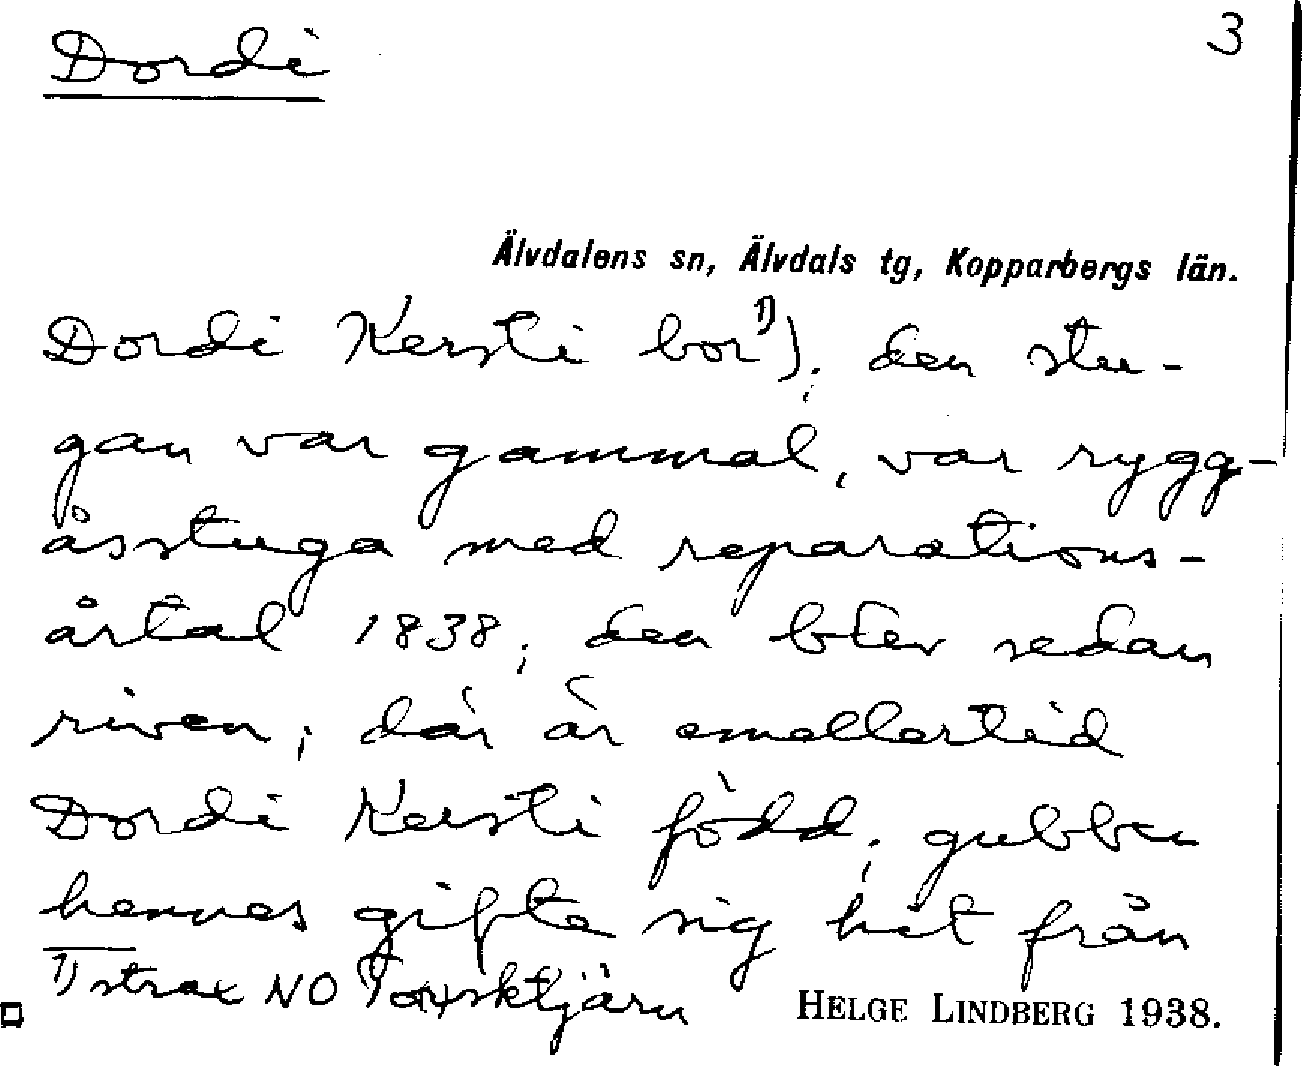 Dordi
3
Älvdalens sn, Älvdals tg, Kopparbergs län.
Dordi Kersti bor¹⁾); den stu-
gan var gammal, var rygg-
åsstuga med reparations-
årtal 1838; den blev sedan
riven; där är emellertid
Dordi Kersti född; gubben
hennes gifte sig hit från
¹⁾ strax NO
HELGE LINDBERG 1938.